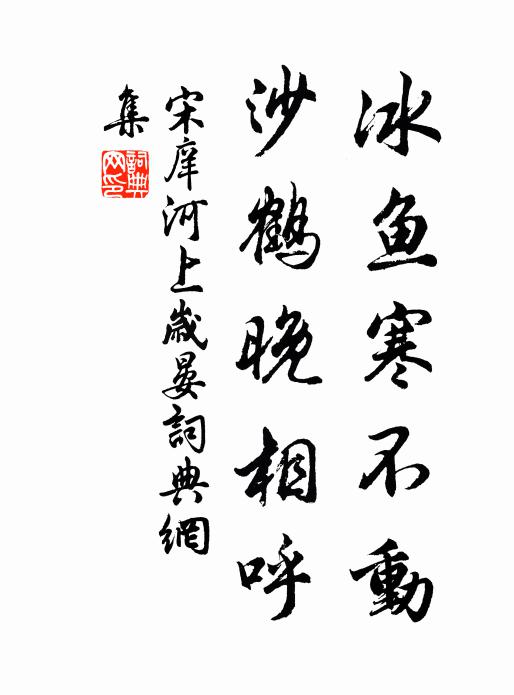 冰鱼寒不動
沙鶴晚相呼
宋庠河上歲晏詞典網
集
詞典
网印